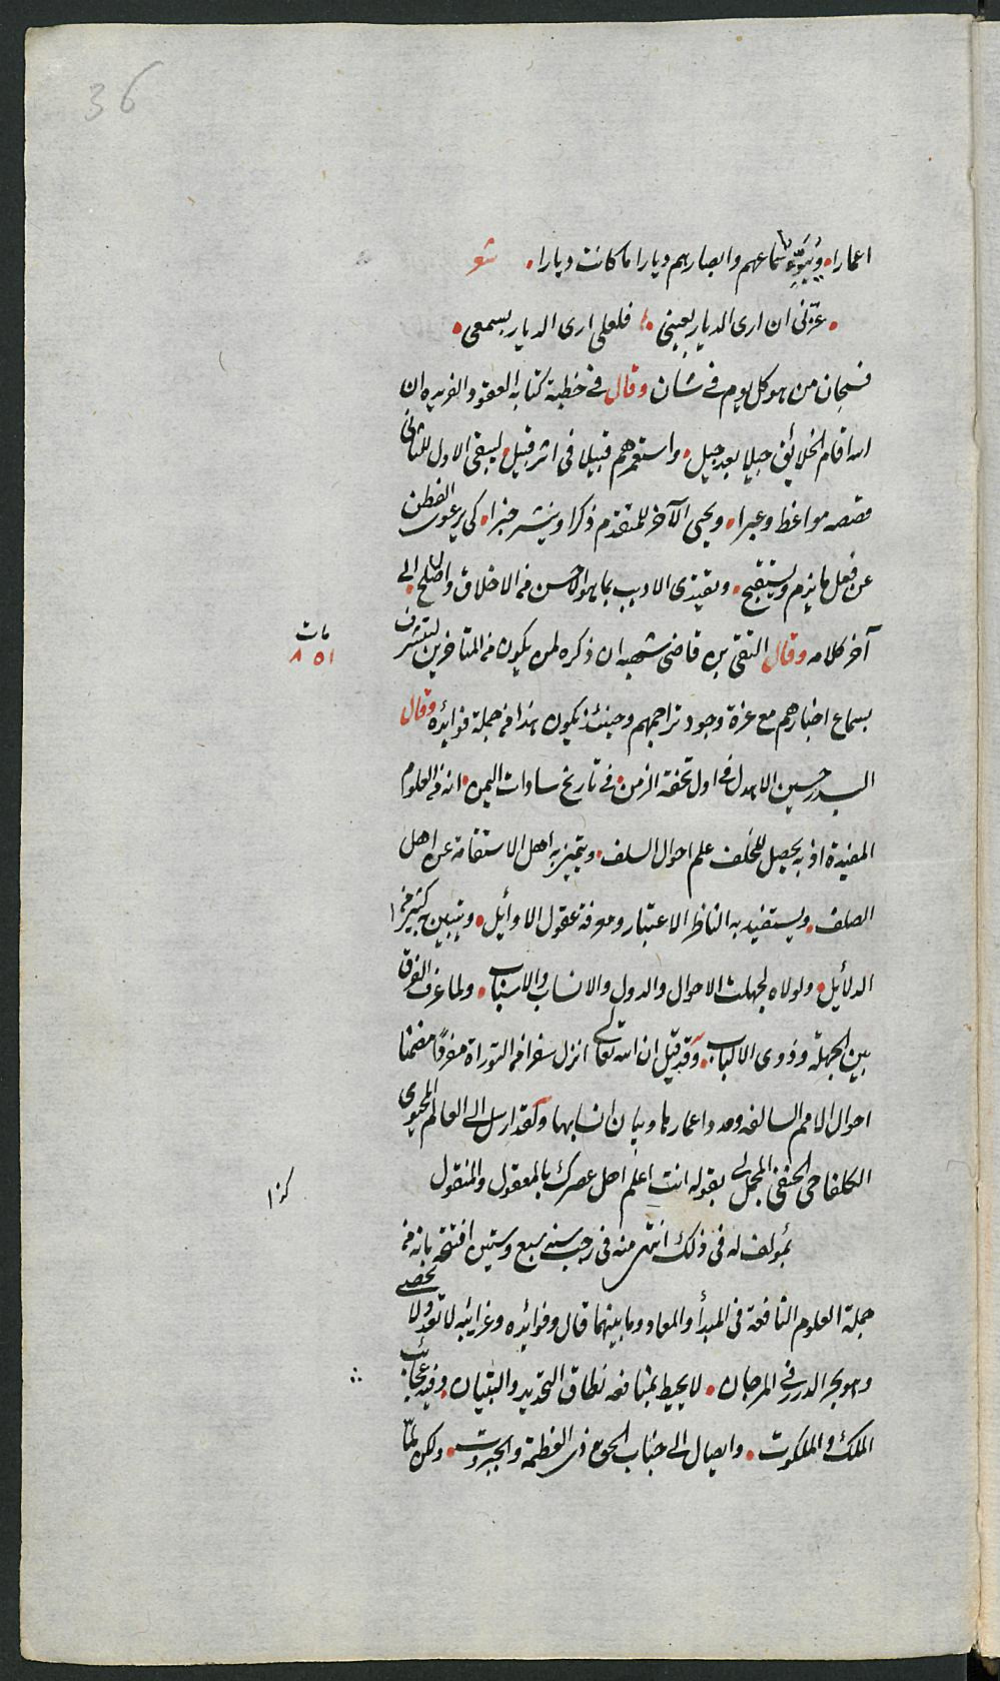 36
اعمارا • ويُبَوِّءُ اسماعهم وابصارهم ديارا ما كانت ديارا • شعر
• عزّنى ان ارى الديار بعينى • فلعلى ارى الديار بسمعى •
فسبحان من هو كل يوم فى شان وقال فى خطبة كتابه العقود الفريده ان
الله اقام الخلائق جيلا بعد جيل • واستعمرهم قبيلا فى اثر قبيل • ليبقى الاول للثانى
قصصه مواعظ وعبرا • ويحيى الآخر للمتقدم ذكرا وينشر خبرا • كى يرعوى الفطن
عن فعل ما يذم ويستقبح • ويقتدى الاديب بما هو الاحسن من الاخلاق والاصلح الى
آخر كلامه وقال التقى بن قاضى شهبه ان ذكره لمن يكون من المتاخرين ليتشرف
مات
٨٥١
بسماع اخبارهم مع عزة وجود تراجمهم وحينئذ يكون هذا من جملة فوائده وقال
البدر حسين الاهدل فى اول تحفة الزمن • فى تاريخ سادات اليمن • انه من العلوم
المفيدة اذ به يحصل للخلف علم احوال السلف • ويتميز به اهل الاستقامة عن اهل
الصلف • ويستفيد به الناظر الاعتبار ومعرفة عقول الاوايل • ويتبين به كثير من
الدلائل • ولولاه لجهلت الاحوال والدول والانساب والاسباب • ولما عرف الفرق
بين الجهلة وذوى الالباب • وقد قيل ان الله تعالى انزل سفرا من التوراة مفردًا مضمنا
احوال الامم السالفه ومدد اعمارها وبيان انسابها ولقد ارسل الى العالم المحيوى
الكلفاجى الحنفى المجمل لى بقوله انت اعلم اهل عصرك بالمعقول والمنقول
كذا
بمؤلف له فى ذلك انتهى منه فى رجب سنه سبع وستين افتتحه بانه من
جملة العلوم النافعة فى المبدأ والمعاد وما بينهما قال وفوائده وغرائبه لا تعد ولا تحصى
وهو بحر الدرر فى المرجان • لا يحيط بمنافعه نطاق التحديد والتبيان • وفيه عجائب
الملك والملكوت • وايصال الى جناب الحق مع ذى العظمة والجبروت • ولكن لمّا